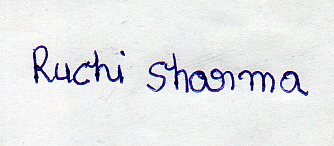 Ruchi Sharma